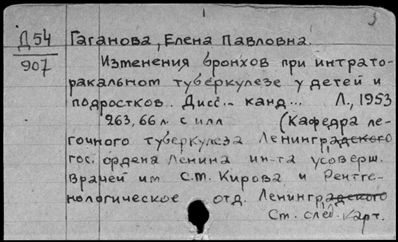 Д54
907
Гаганова, Елена Павловна.
Изменения бронхов при интрато-
ракальном туберкулезе у детей и
подростков. Дисс... канд... Л., 1953
263, 66 л. с илл (Кафедра ле-
гочного туберкулеза Ленинградского
гос. ордена Ленина ин-та усоверш.
врачей им. С.М. Кирова и Рентге-
нологическое отд. Ленинградского
См. след. карт.